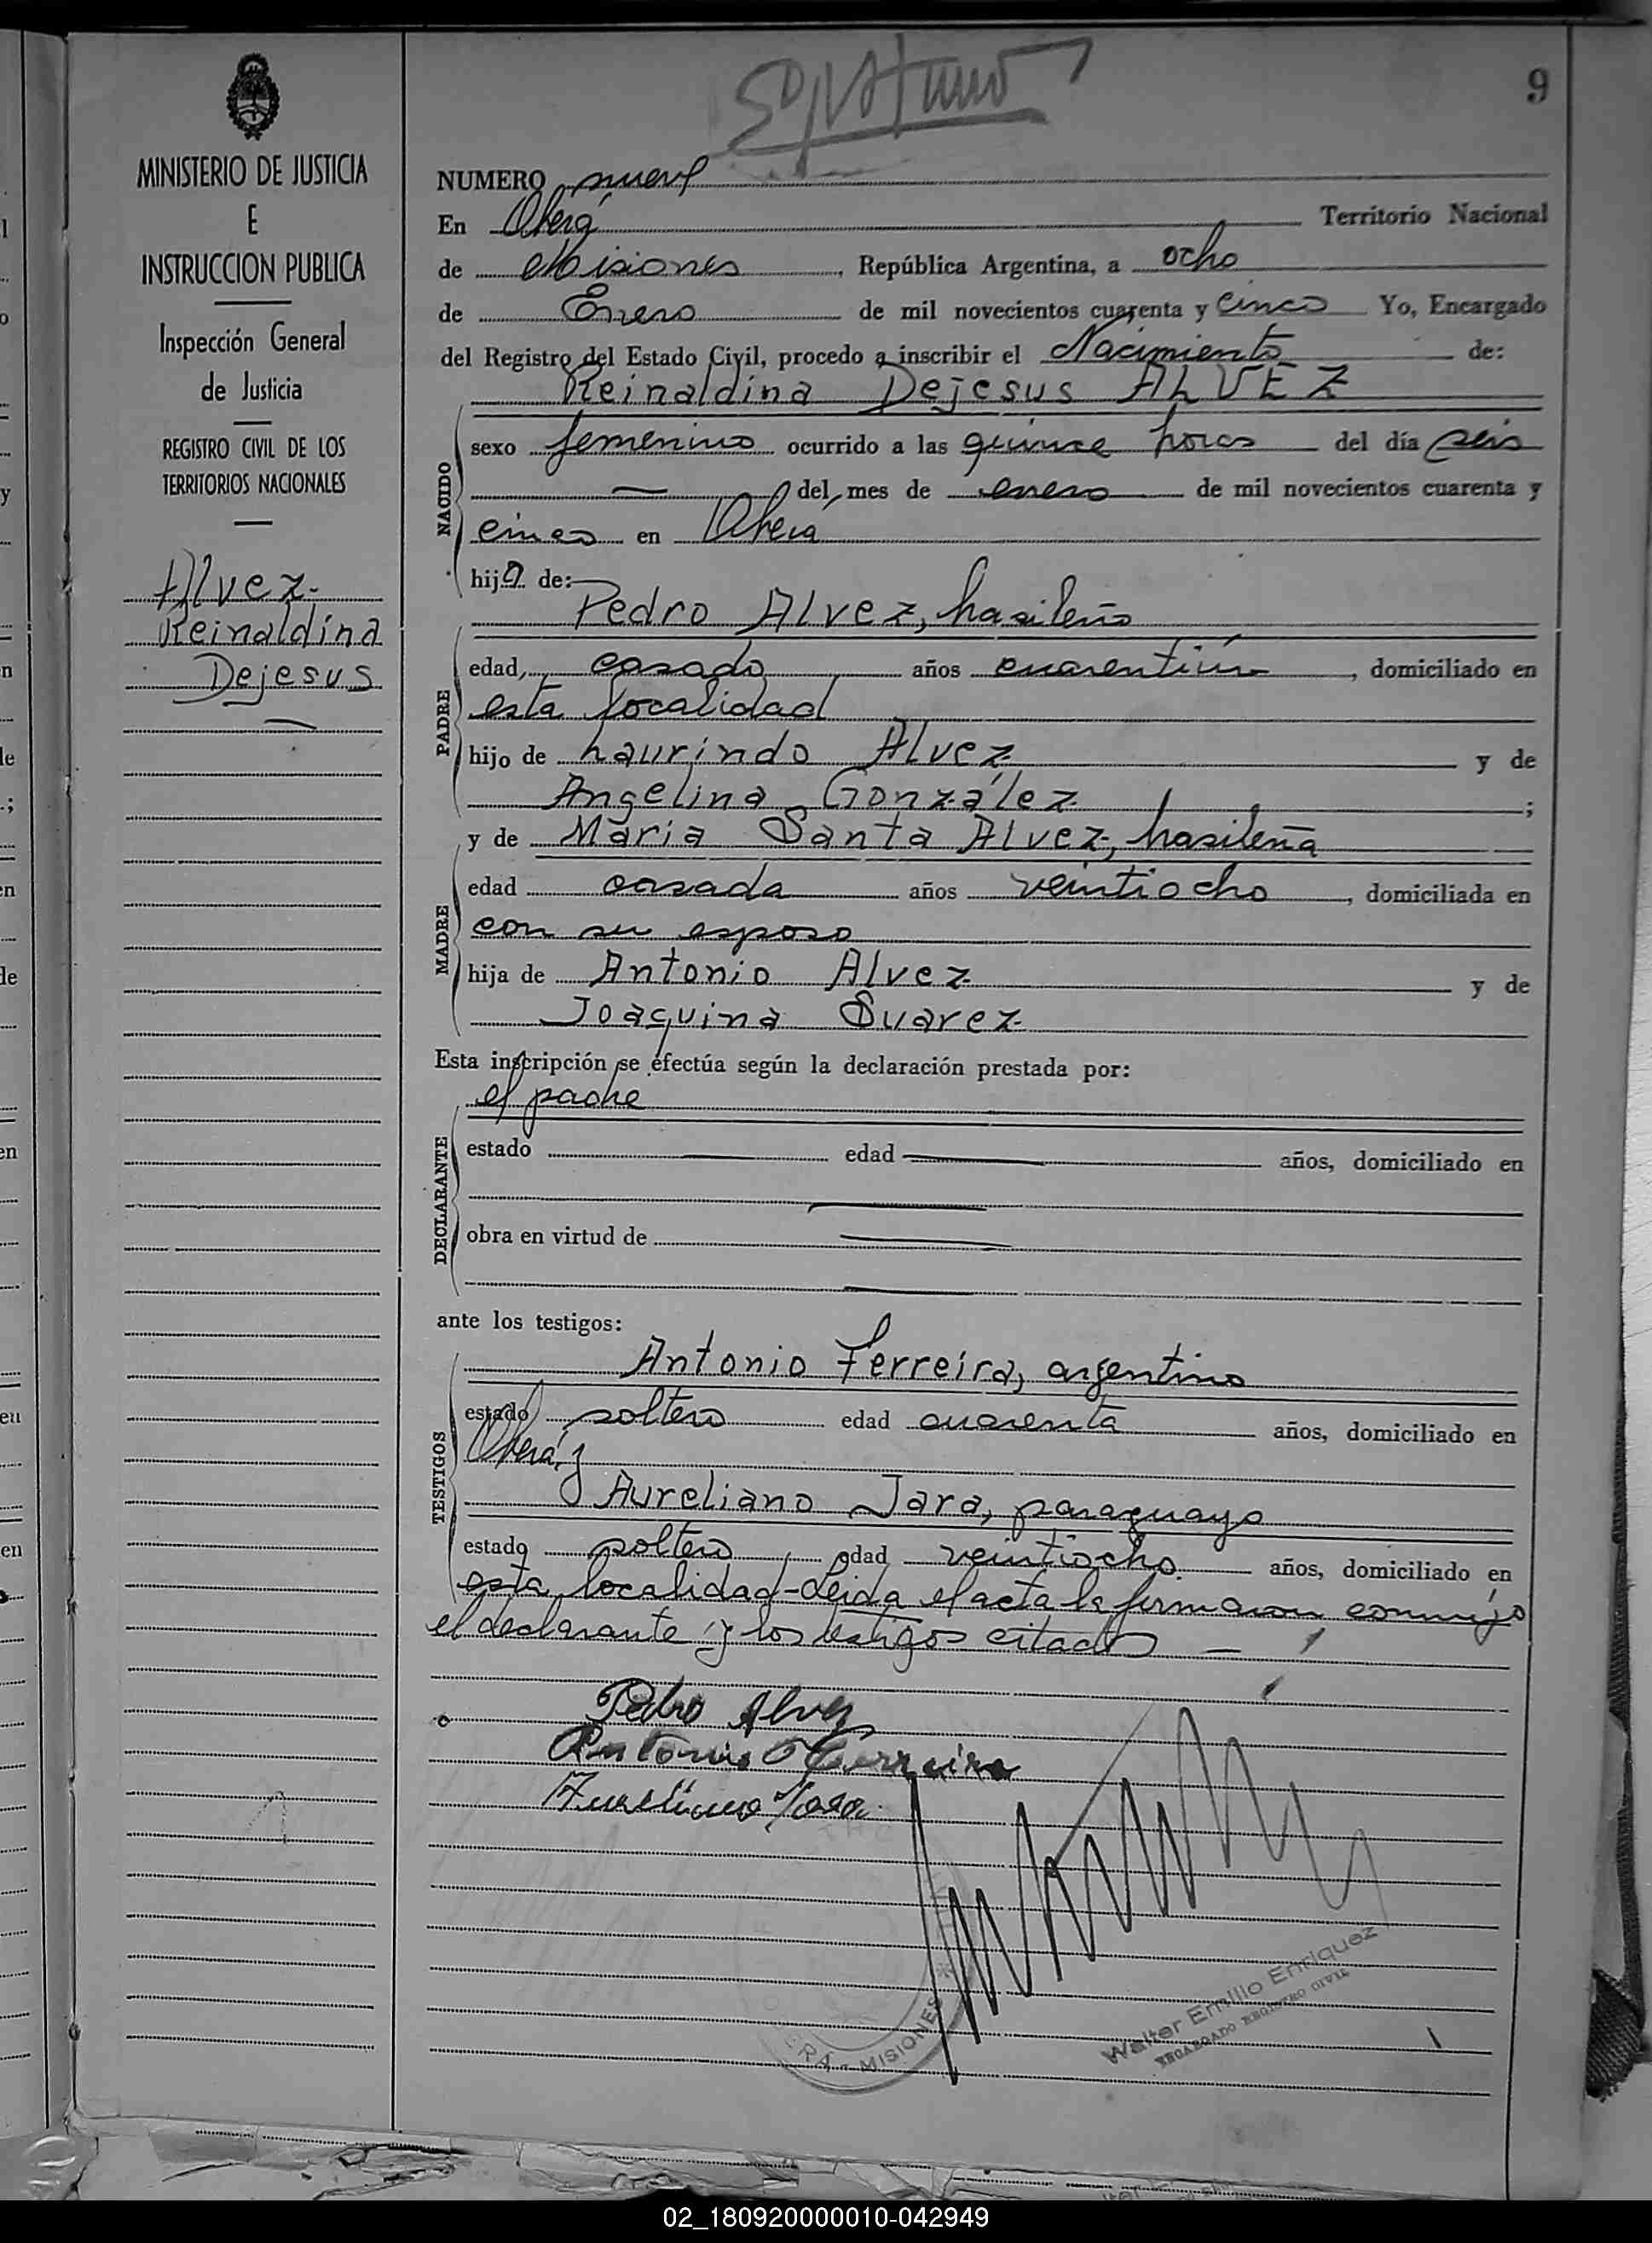 9
MINISTERIO DE JUSTICIA
E
INSTRUCCION PUBLICA
Inspección General
de Justicia
REGISTRO CIVIL DE LOS
TERRITORIOS NACIONALES
Alvez
Reinaldina
Dejesus
NUMERO nueve
En Oberá Territorio Nacional
de Misiones, República Argentina, a ocho
de Enero de mil novecientos cuarenta y cinco Yo, Encargado
del Registro del Estado Civil, procedo a inscribir el Nacimiento de:
Reinaldina Dejesus ALVEZ
NACIDO
sexo femenino ocurrido a las quince horas del día seis
— del mes de enero de mil novecientos cuarenta y
cinco en Oberá
hija de:
Pedro Alvez, brasileño
PADRE
edad, casado años cuarentiún, domiciliado en
esta localidad
hijo de Laurindo Alvez y de
Angelina González ;
y de Maria Santa Alvez, brasileña
MADRE
edad casada años veintiocho, domiciliada en
con su esposo
hija de Antonio Alvez y de
Joaquina Suarez
Esta inscripción se efectúa según la declaración prestada por:
el padre
DECLARANTE
estado — edad — años, domiciliado en
—
obra en virtud de —
—
ante los testigos:
TESTIGOS
Antonio Ferreira, argentino
estado soltero edad cuarenta años, domiciliado en
Oberá y
Aureliano Jara, paraguayo
estado soltero edad veintiocho años, domiciliado en
esta localidad - Leida el acta la firmaron conmigo
el declarante y los testigos citados —
Pedro Alvez
Antonio Ferreira
Aureliano Jara
ERÁ - MISIONES
Walter Emilio Enriquez
ENCARGADO REGISTRO CIVIL
02_180920000010-042949